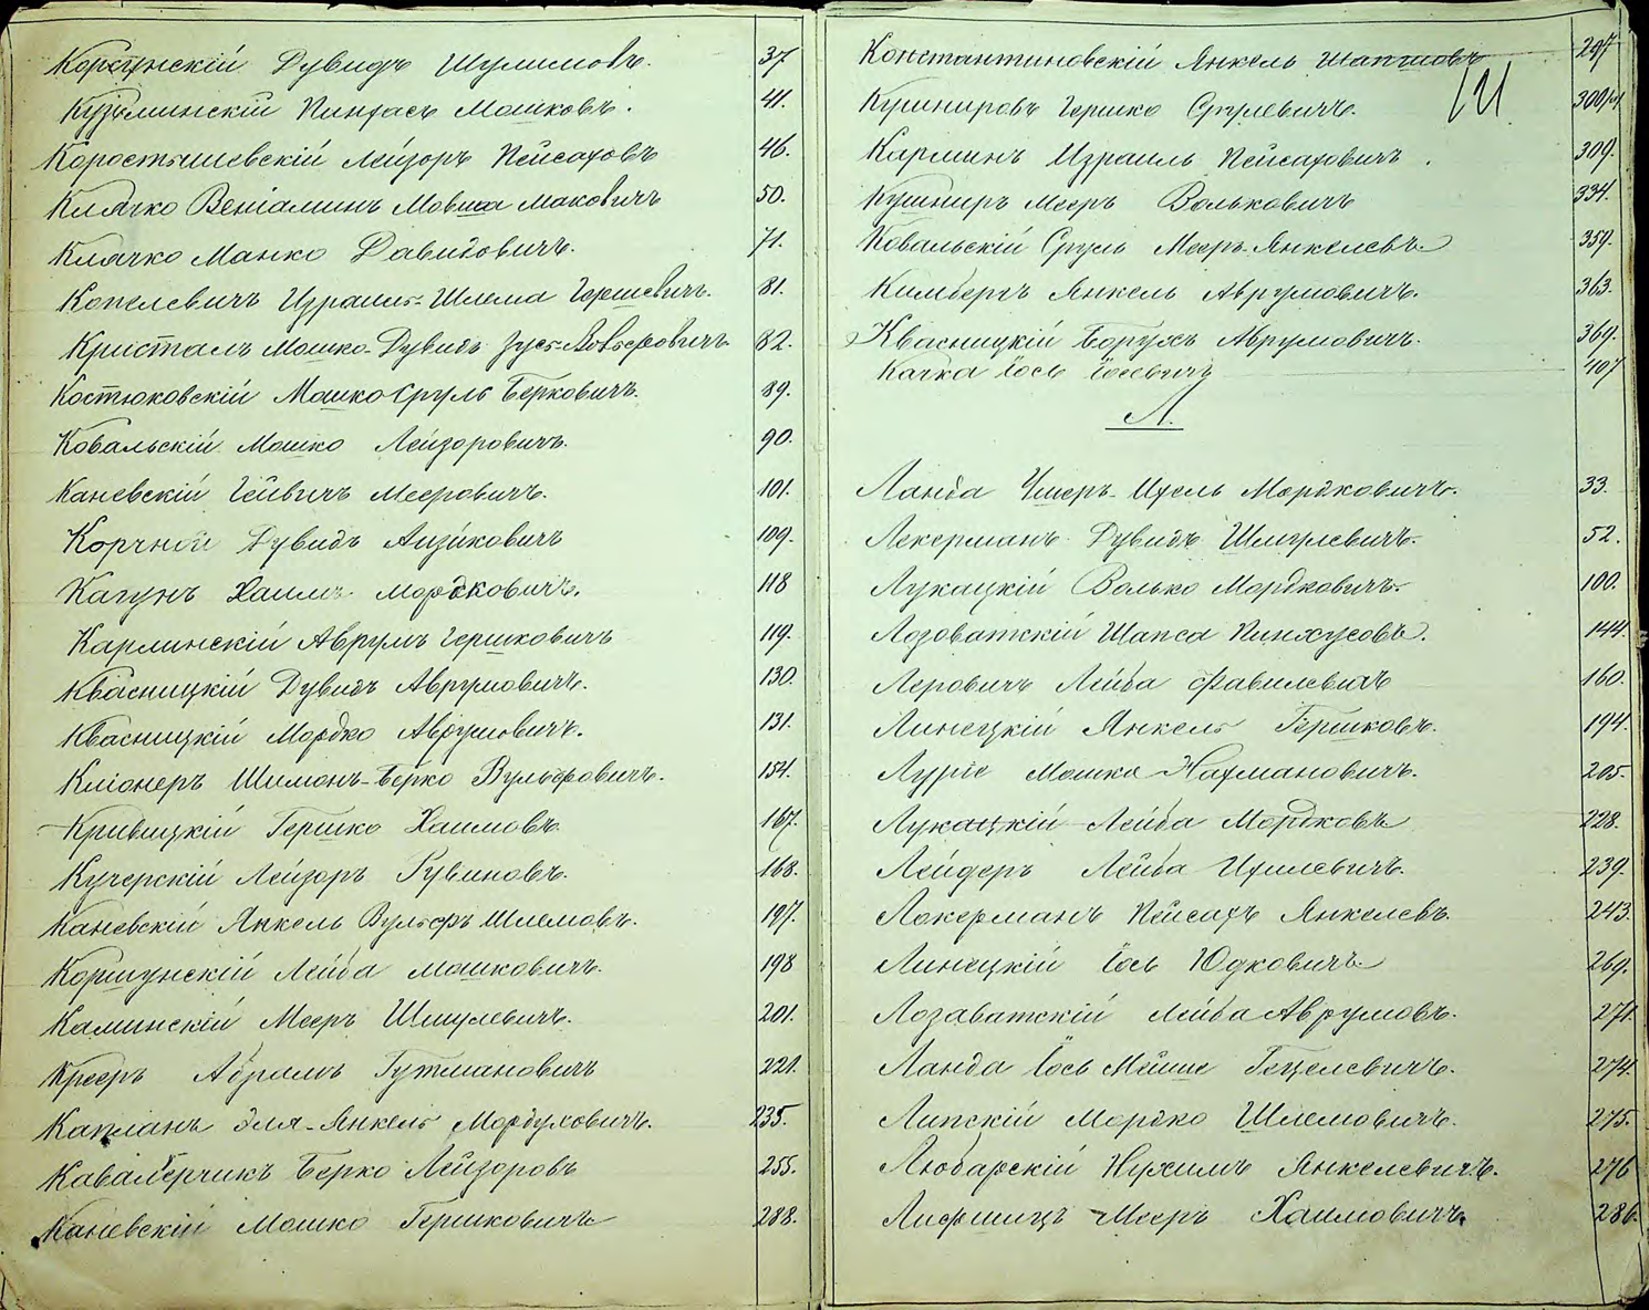 Корсунскій Дувидъ Шулимовъ. 37
Кузьминскій Пинхасъ Мошковъ. 41.
Коростышевскій Лейзоръ Пейсаховъ 46.
Клячко Веніаминъ Мовша Маковичъ 50.
Клячко Манко Давидовичъ. 71.
Копелевичъ Израиль-Шлема Гершевичъ. 81.
Кристалъ Мошко-Дувидъ Зусь-Вольфовичъ 82.
Костюковскій Мошко Сруль Берковичъ. 89.
Ковальскій Мошко Лейзоровичъ. 90.
Каневскій Мееровичъ. 101.
Корчной Дувидъ Айзиковичъ 109.
Кагунъ Хаимъ Мордковичъ. 118
Карлинскій Аврумъ Гершковичъ 119.
Квасницкій Дувидъ Аврумовичъ. 130.
Квасницкій Мордко Аврумовичъ. 131.
Кліонеръ Шимонъ-Берко Вульфовичъ. 154.
Кривицкій Гершко Хаимовъ 167.
Кучерскій Лейзоръ Рувиновъ. 168.
Каневскій Янкель Вульфъ Шлемовъ. 197.
Коршунскій Лейба Мошковичъ. 198
Каминскій Мееръ Шмулевичъ. 201.
Крееръ Абрамъ Гутмановичъ 221.
Капланъ Эля-Янкель Мордуховичъ. 235.
Кавалерчикъ Берко Лейзоровъ 255.
Каневскій Мошко Гершковичъ 288.
Константиновскій Янкель Шапшовъ 297
Кушнировъ Гершко Срулевичъ. 300/
Карлинъ Израиль Пейсаховичъ. 309.
Кушниръ Мееръ Вольковичъ 334.
Ковальскій Сруль Мееръ Янкелевъ 359.
Кимбергъ Янкель Аврумовичъ. 363.
Квасницкій Борухъ Аврумовичъ. 369.
Качка Іось Іосевичъ 407
Л.
Ланда Ушеръ-Ицель Мордковичъ. 33.
Лекерманъ Дувидъ Шмулевичъ. 52.
Лукацкій Волько Мордковичъ. 100.
Лозоватскій Шапса Пинхусовъ. 144.
Леровичъ Лейба Фавилевичъ 160.
Линецкій Янкель Гершковъ. 194.
Луріе Мошко Нахмановичъ. 205.
Лукацкій Лейба Мордковъ 228.
Лейдеръ Лейба Ицилевичъ. 239.
Локерманъ Пейсахъ Янкелевъ. 243.
Линецкій Іось Юдковичъ 269.
Лозаватскій Лейба Аврумовъ. 271.
Ланда Іось Мейше Гецелевичъ. 274.
Липскій Мордко Шлемовичъ. 275.
Любарскій Нухимъ Янкелевичъ. 276
Лифшицъ Мееръ Хаимовичъ. 286.